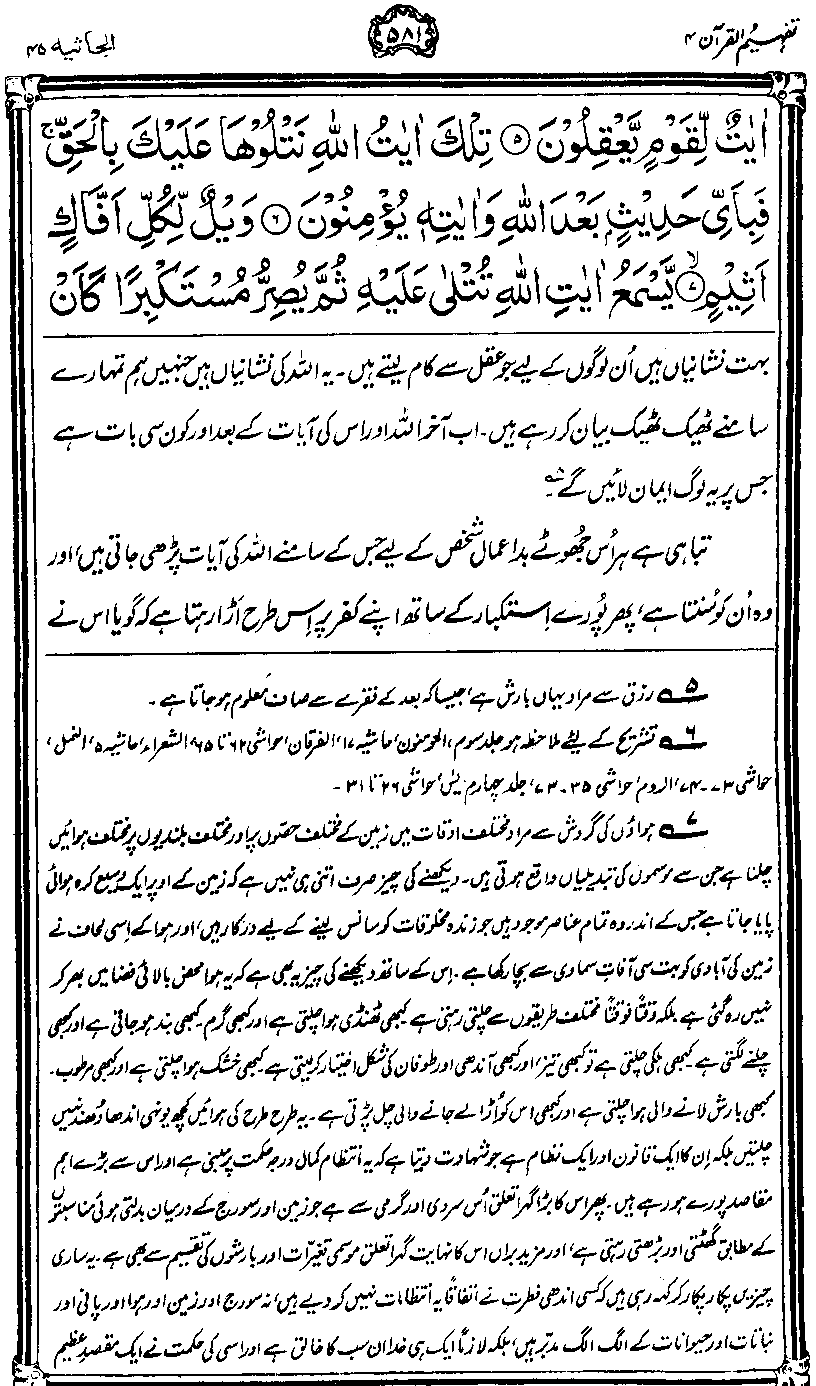 تفہیم القرآن ۴
۵۸۱
الجاثیہ ۴۵
اٰیٰتٌ لِّقَوْمٍ یَّعْقِلُوْنَ ۵ تِلْكَ اٰیٰتُ اللّٰهِ نَتْلُوْهَا عَلَیْكَ بِالْحَقِّ ۚ
فَبِاَیِّ حَدِیْثٍۭ بَعْدَ اللّٰهِ وَاٰیٰتِهٖ یُؤْمِنُوْنَ ۶ وَیْلٌ لِّكُلِّ اَفَّاكٍ
اَثِیْمٍ ۷ یَّسْمَعُ اٰیٰتِ اللّٰهِ تُتْلٰى عَلَیْهِ ثُمَّ یُصِرُّ مُسْتَكْبِرًا كَاَنْ
بہت نشانیاں ہیں اُن لوگوں کے لیے جو عقل سے کام لیتے ہیں۔ یہ اللہ کی نشانیاں ہیں جنہیں ہم تمہارے
سامنے ٹھیک ٹھیک بیان کر رہے ہیں۔ اب آخر اللہ اور اس کی آیات کے بعد اور کون سی بات ہے
جس پر یہ لوگ ایمان لائیں گے۔
تباہی ہے ہر اُس جھوٹے بد اعمال شخص کے لیے جس کے سامنے اللہ کی آیات پڑھی جاتی ہیں، اور
وہ اُن کو سُنتا ہے، پھر پُورے اِستکبار کے ساتھ اپنے کفر پر اِس طرح اَڑا رہتا ہے کہ گویا اس نے
۵ رزق سے مراد یہاں بارش ہے، جیسا کہ بعد کے فقرے سے صاف معلوم ہو جاتا ہے۔
۶ تشریح کے لیے ملاحظہ ہو جلد سوم، المومنون، حاشیہ ۱۷، الفرقان، حواشی ۶۲ تا ۶۵، الشعراء، حاشیہ ۵، النمل،
حواشی ۷۳-۷۴، الروم، حواشی ۳۵-۷۳، جلد چہارم یٰس، حواشی ۲۶ تا ۳۱۔
۷ ہواؤں کی گردش سے مراد مختلف اوقات میں زمین کے مختلف حصوں پر اور مختلف بلندیوں پر مختلف ہوائیں
چلنا ہے جن سے موسموں کی تبدیلیاں واقع ہوتی ہیں۔ دیکھنے کی چیز صرف اتنی ہی نہیں ہے کہ زمین کے اوپر ایک وسیع کرہ ہوائی
پایا جاتا ہے جس کے اندر وہ تمام عناصر موجود ہیں جو زندہ مخلوقات کو سانس لینے کے لیے درکار ہیں، اور ہوا کے اِسی لحاف نے
زمین کی آبادی کو بہت سی آفاتِ سماوی سے بچا رکھا ہے۔ اِس کے ساتھ دیکھنے کی چیز یہ بھی ہے کہ یہ ہوا محض بالائی فضا میں بھر کر
نہیں رہ گئی ہے بلکہ وقتاً فوقتاً مختلف طریقوں سے چلتی رہتی ہے۔ کبھی ٹھنڈی ہوا چلتی ہے اور کبھی گرم۔ کبھی بند ہو جاتی ہے اور کبھی
چلنے لگتی ہے۔ کبھی ہلکی چلتی ہے تو کبھی تیز، اور کبھی آندھی اور طوفان کی شکل اختیار کر لیتی ہے۔ کبھی خشک ہوا چلتی ہے اور کبھی مرطوب۔
کبھی بارش لانے والی ہوا چلتی ہے اور کبھی اس کو اُڑا لے جانے والی چل پڑتی ہے۔ یہ طرح طرح کی ہوائیں کچھ یونہی اندھا دُھند نہیں
چلتیں بلکہ اِن کا ایک قانون اور ایک نظام ہے جو شہادت دیتا ہے کہ یہ انتظام کمال درجہ حکمت پر مبنی ہے اور اس سے بڑے اہم
مقاصد پورے ہو رہے ہیں۔ پھر اس کا بڑا گہرا تعلق اُس سردی اور گرمی سے ہے جو زمین اور سورج کے درمیان بدلتی ہوئی مناسبتوں
کے مطابق گھٹتی اور بڑھتی رہتی ہے، اور مزید براں اس کا نہایت گہرا تعلق موسمی تغیرات اور بارشوں کی تقسیم سے بھی ہے۔ یہ ساری
چیزیں پکار پکار کر کہہ رہی ہیں کہ کسی اندھی فطرت نے اتفاقاً یہ انتظامات نہیں کر دیے ہیں، نہ سورج اور زمین اور ہوا اور پانی اور
نباتات اور حیوانات کے الگ الگ مدبّر ہیں، بلکہ لازماً ایک ہی خدا ان سب کا خالق ہے اور اسی کی حکمت نے ایک مقصدِ عظیم